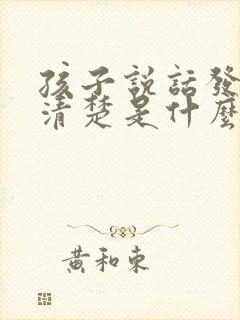 孩子説話發
清楚是什麼
黃和東